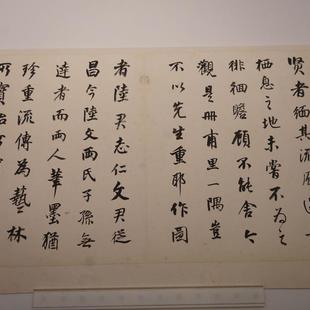 賢者緬其流風
栖息之地未嘗不為之
徘徊瞻顧不能舍今
觀是冊甫里一隅豈
不以先生重耶作圖
者陸君志仁文君從
昌今陸文兩氏子孫無
達者而兩人筆墨猶
珍重流傳為藝林
所寶